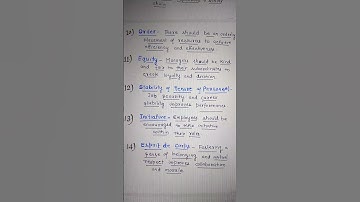 10) Order - There should be an orderly
placement of resources to
efficiency and effectiveness
11) Equity - Managers should be kind
and fair to their subordinates to
create loyalty and
12) Stability of Tenure of Personnel -
Job security and career
stability increases performance
13) Initiative - Employees should be
encouraged to take initiative
within their role
14) Esprit de Corps - Fostering a
sense of belonging and
respect collaboration
and morale